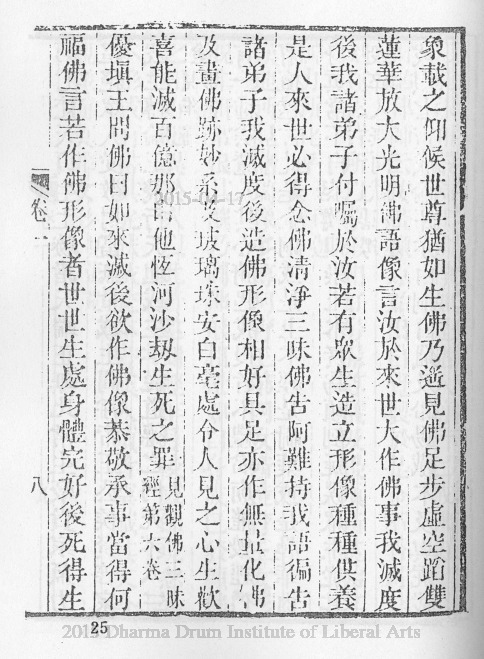 象載之仰候世尊猶如生佛乃遥見佛足步虛空蹈雙
蓮華放大光明佛語像言汝於來世大作佛事我滅度
後我諸弟子付囑於汝若有眾生造立形像種種供養
是人來世必得念佛清淨三昧佛告阿難持我語徧告
諸弟子我滅度後造佛形像相好具足亦作無量化佛
及畫佛跡妙糸及玻璃珠安白毫處令人見之心生歡
喜能滅百億那由他恆河沙刼生死之罪見觀佛三昧經第六卷
優塡王問佛曰如來滅後欲作佛像恭敬承事當得何
福佛言若作佛形像者世世生處身體完好後死得生
卷一
八
2015-04-17
25
Dharma Drum Institute of Liberal Arts